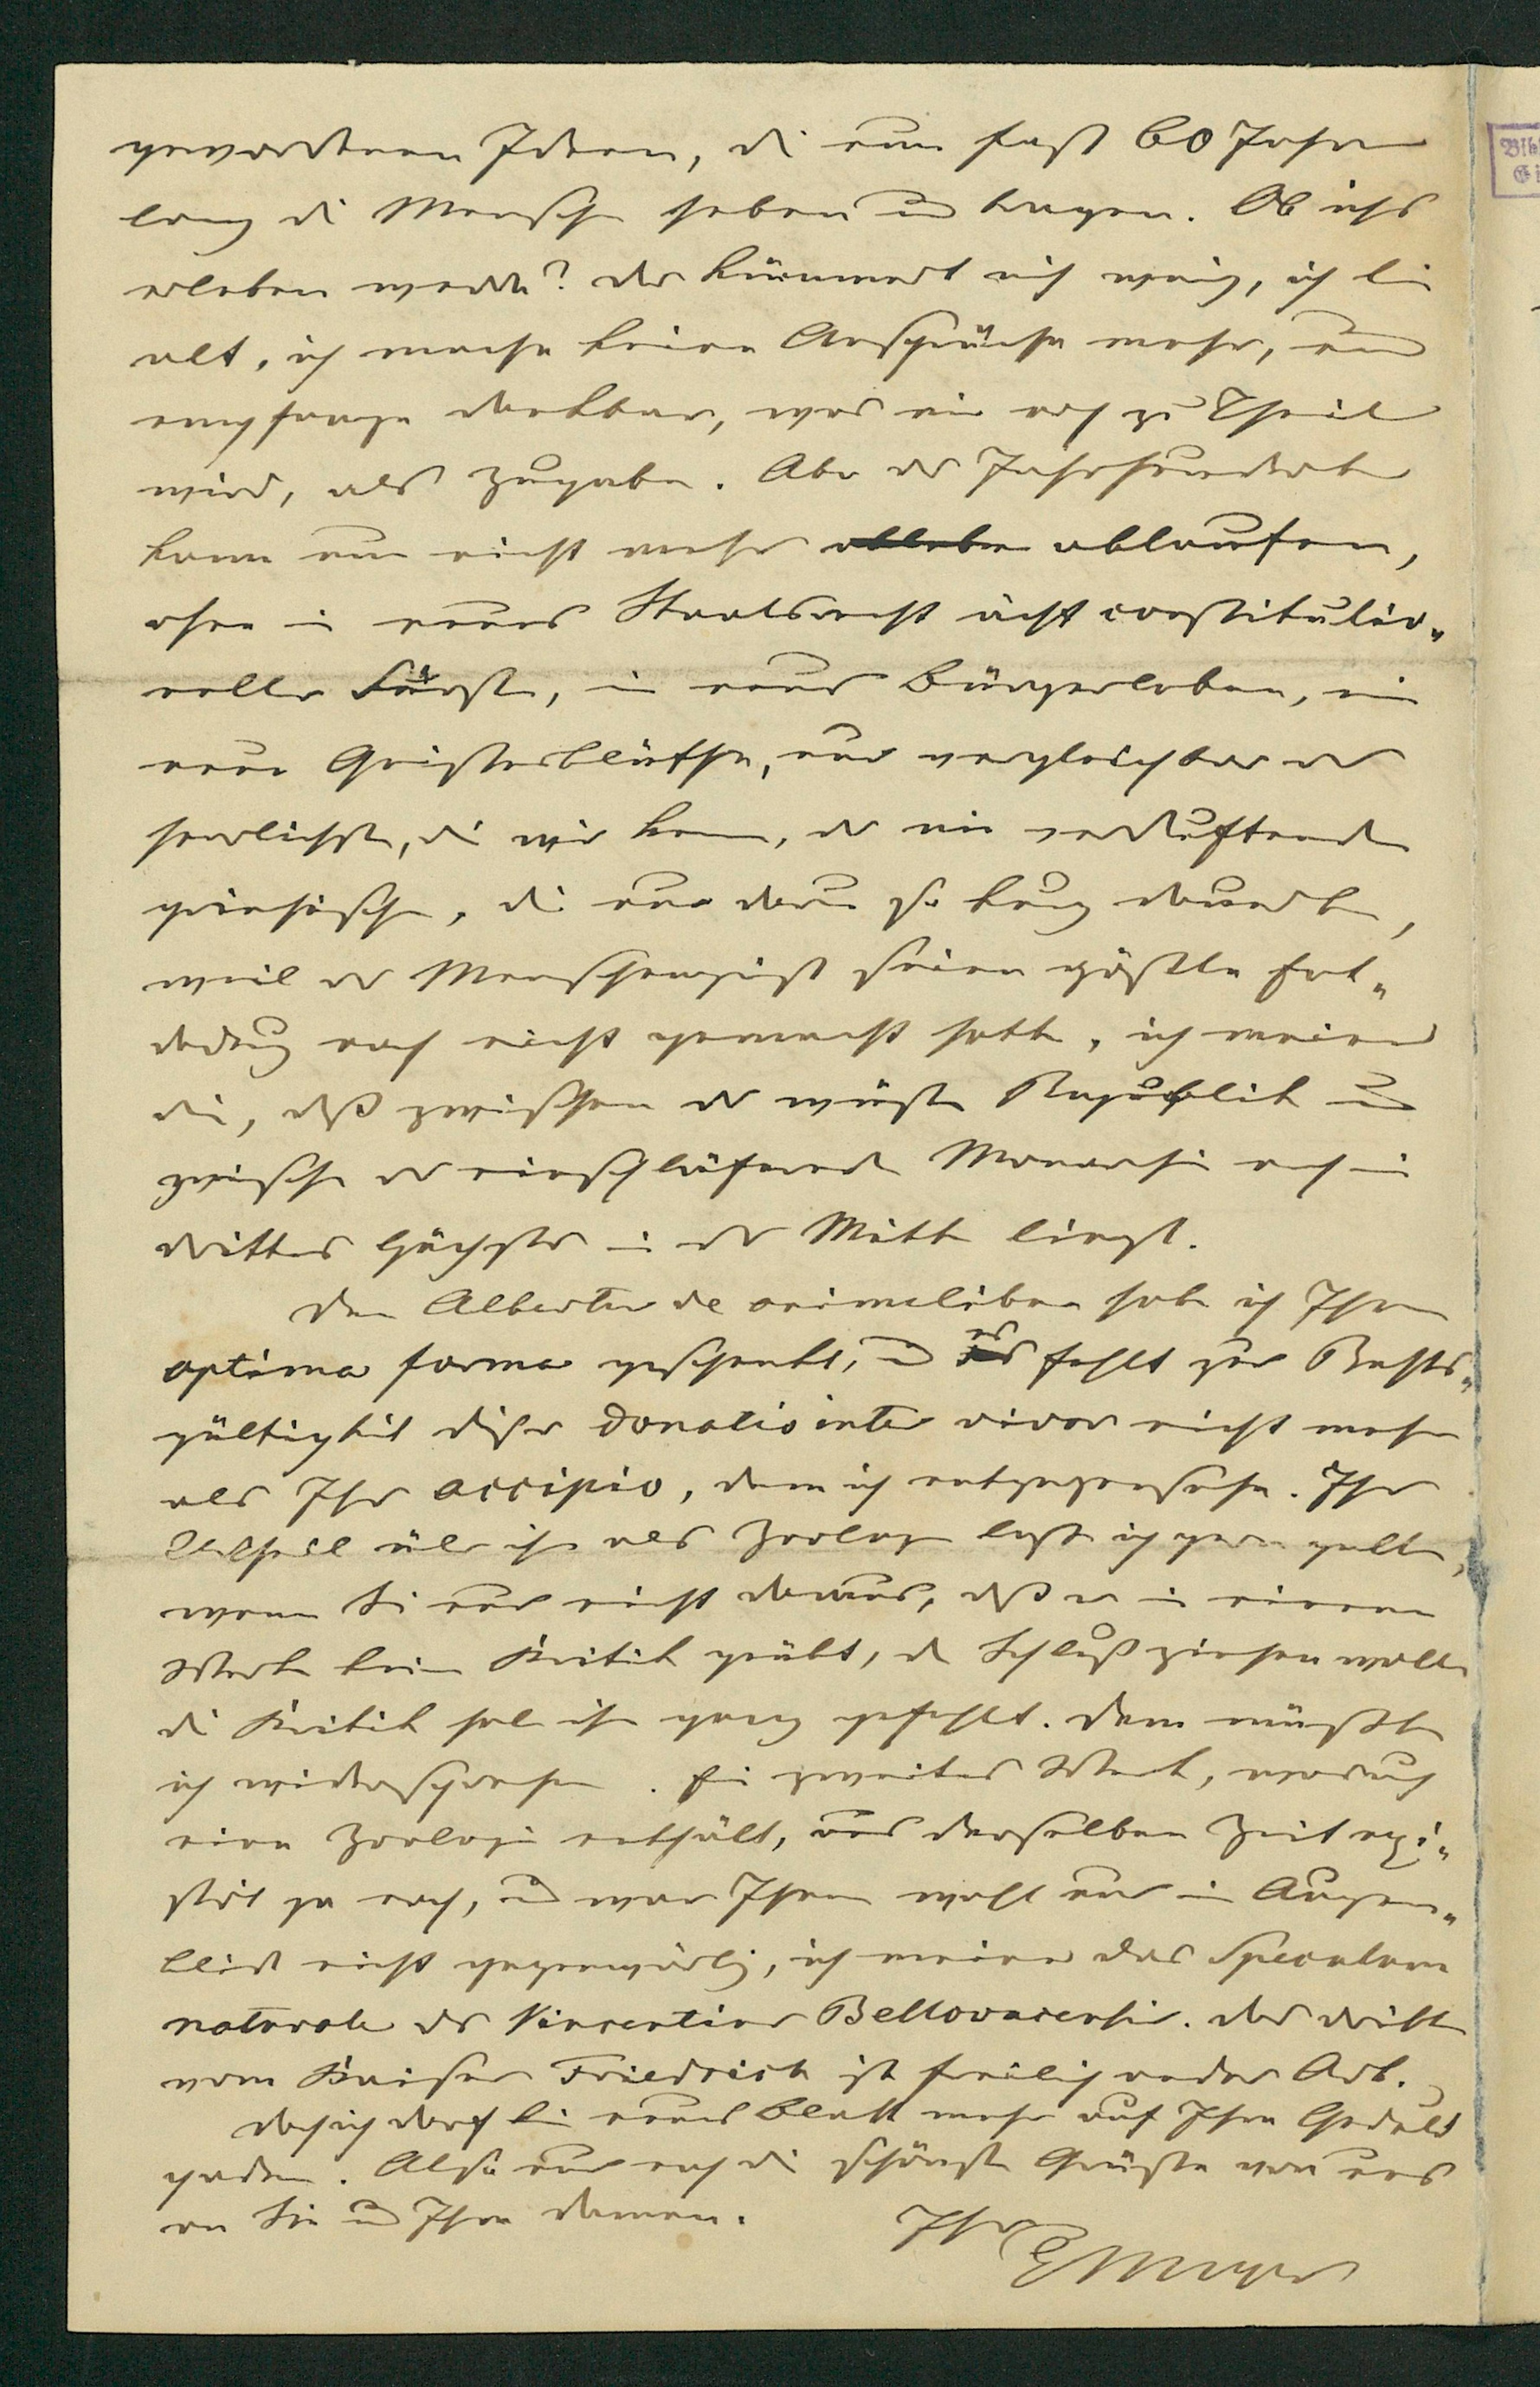 gewordenen Ideen, die nun fast 60 Jahre
lang die Menschen heben und tragen. Ob ichs
erleben werde? das kümmert mich wenig, ich bin
alt, ich mache keine Ansprüche mehr, und
empfange dankbar, was mir noch zu Theil
wird, als Zugabe. Aber das Jahrhundert
kann nun nicht mehr ablaufen,
ohne ein neues Staatsrecht ächt constitutio-
neller Fürsten, ein neues Bürgerleben, eine
neue Geistesblüthe, nur vergleichbar der
herrlichsten, die wir kennen, der nie verduftenden
griechischen, die nur darum so kurz dauerte,
weil der Menschengeist seine größte Ent-
deckung noch nicht gemacht hatte, ich meine
die, daß zwischen der wüsten Republik und
zwischen der einschläfernden Monarchie noch ein
drittes Höchstes in der Mitte liegt.
Den Albertus de animalibus habe ich Ihnen
optima forma geschenkt, und es fehlt zur Rechts-
gültigkeit dieser donatio inter vivos nicht mehr
als Ihr accipio, dem ich entgegensehe. Ihr
Urtheil über ihn als Zoologen lasse ich gern gelten,
wenn Sie nur nicht daraus, daß er in einem
Werke keine Kritik geübt, den Schluß ziehen wollen
die Kritik habe ihm ganz gefehlt. Dem müßte
ich widersprechen. Ein zweites Werk, was auch
eine Zoologie enthält, aus derselben Zeit exi-
stirt ja noch, und war Ihnen wohl nur im Augen-
blick nicht gegenwärtig, ich meine das Speculum
naturale des Vincentius Bellovacensis. Das dritte
vom Kaiser Friedrich ist freilich andrer Art.
Doch ich darf kein neues Blatt mehr auf Ihre Geduld
. Also nur noch die schönsten Grüße von uns
an Sie und Ihre Damen.
Ihr E Meyer